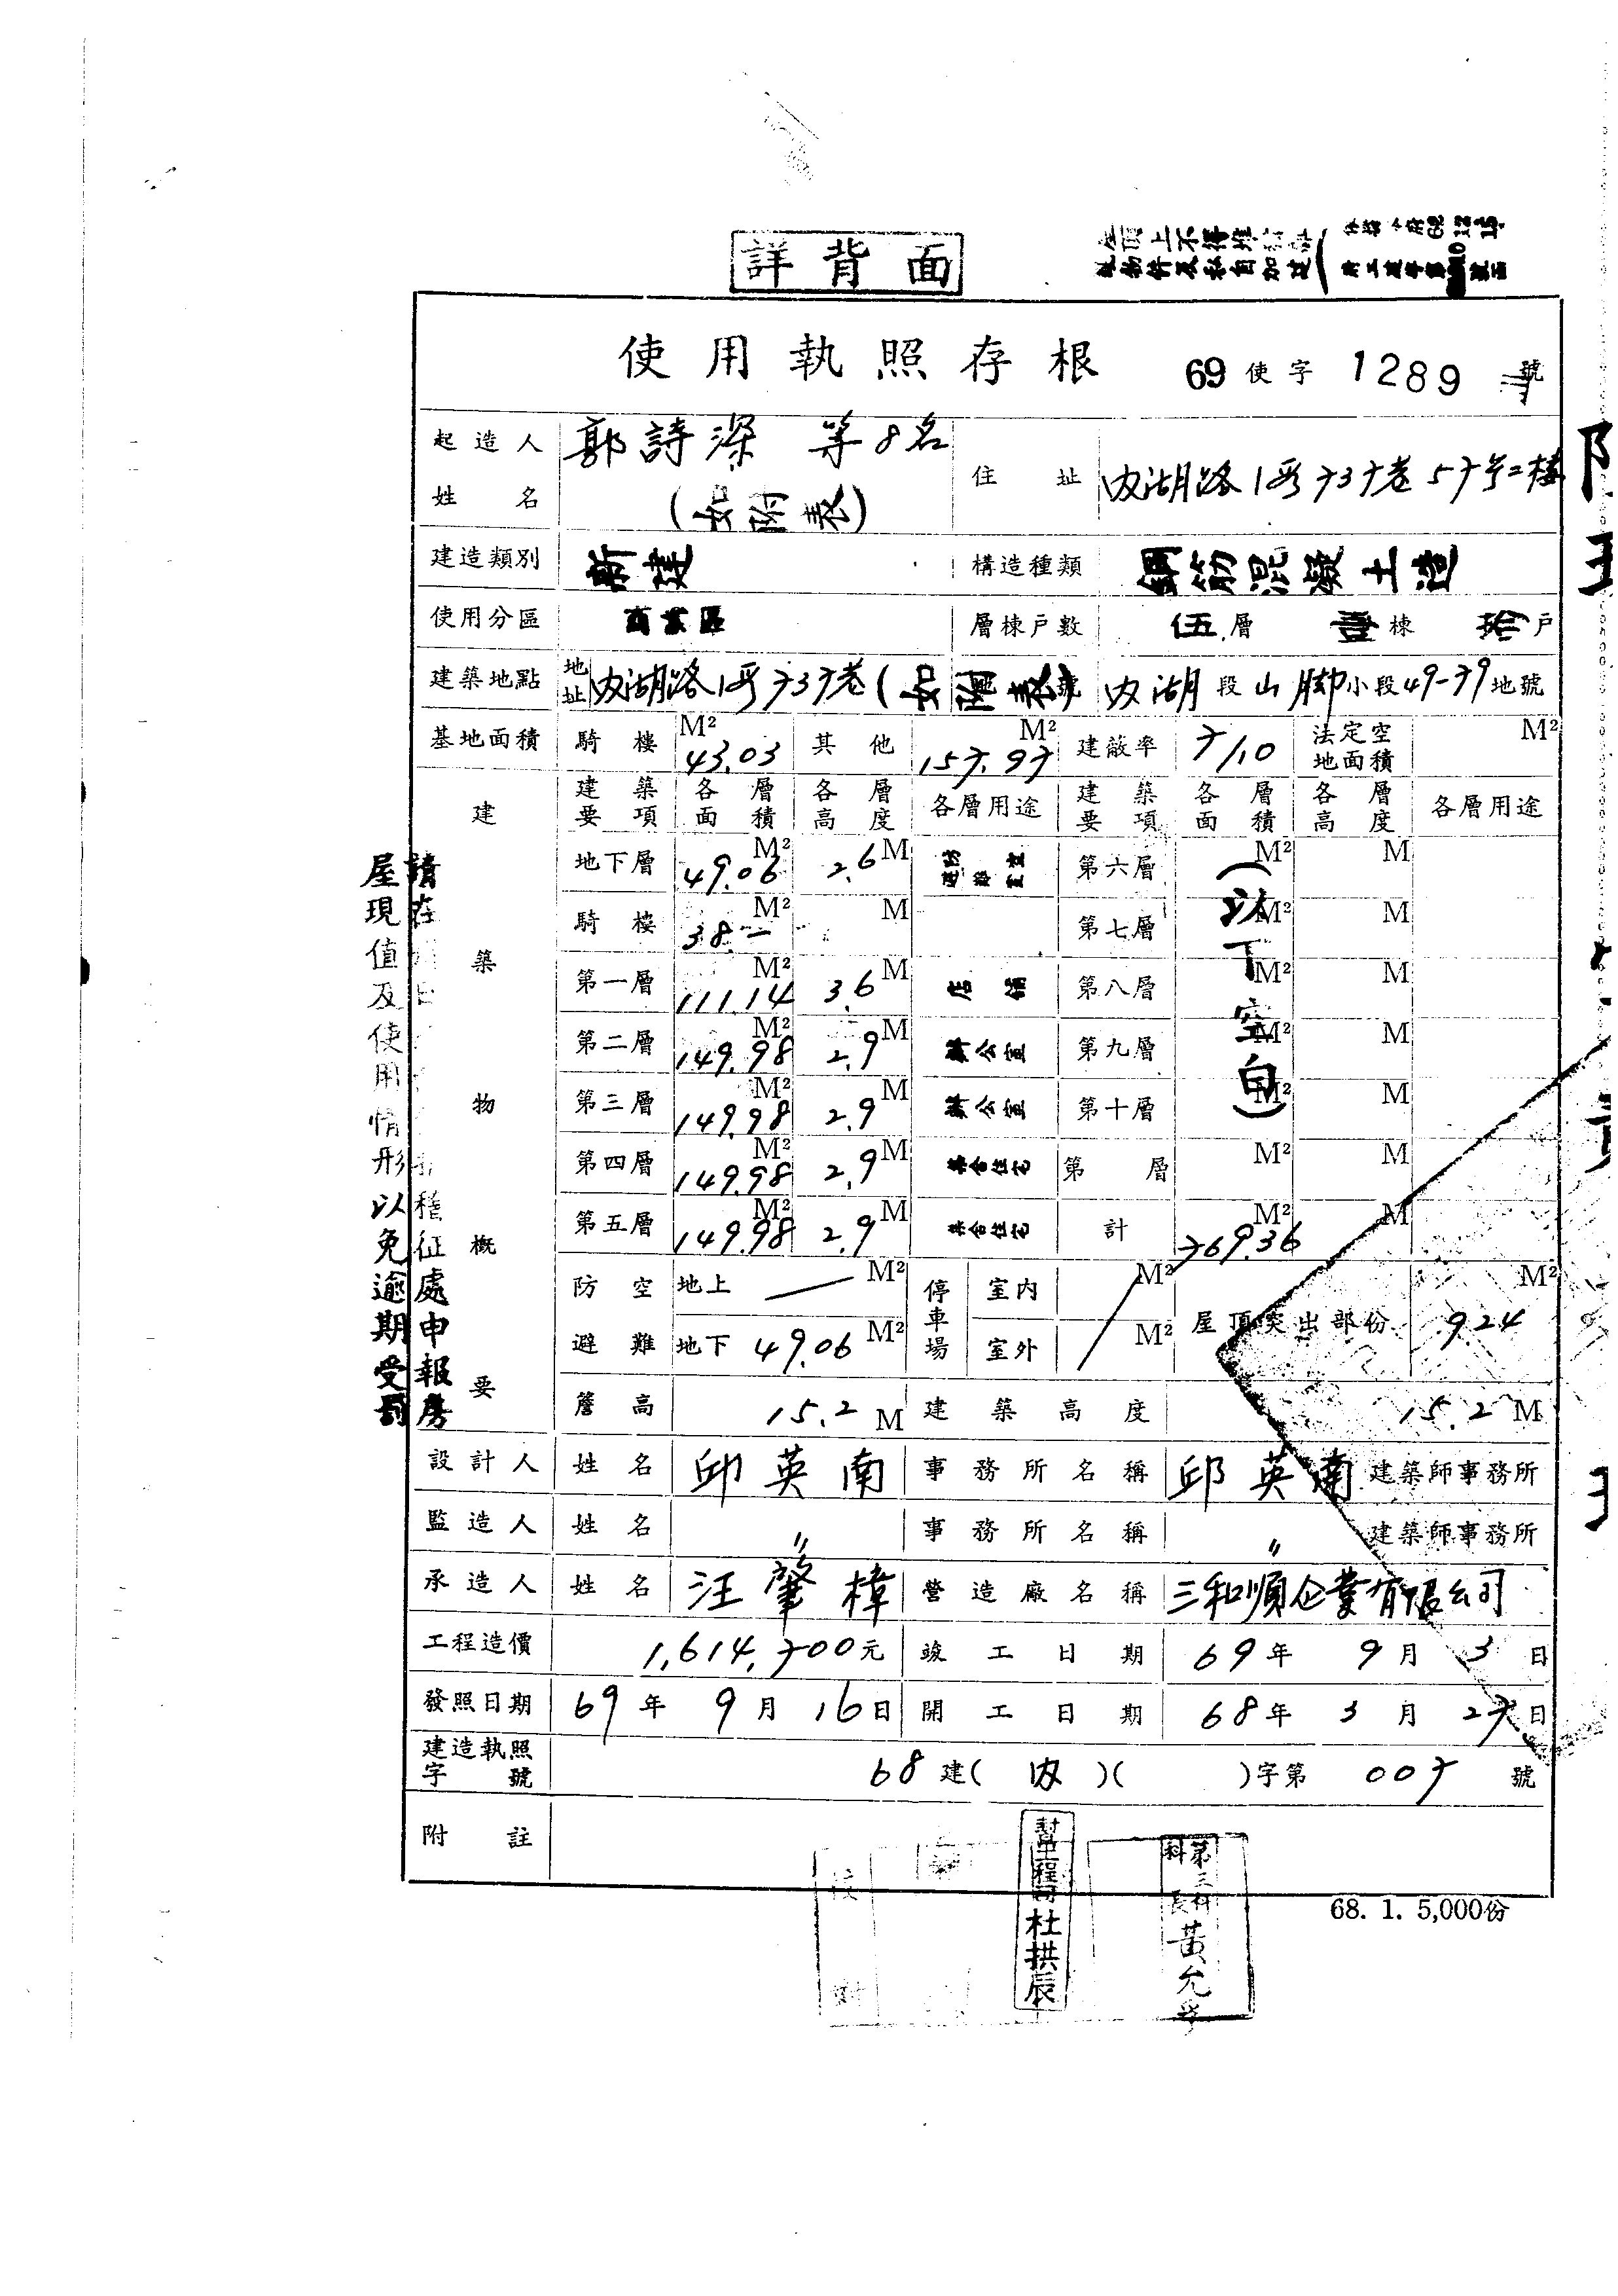 詳背面
使用執照存根 69使字1289號
起造人姓名 郭詩深 等8名 (如附表) 住址 內湖路1段737巷57号二樓
建造類別 新建 構造種類 鋼筋混凝土造
使用分區 商業區 層棟戶數 伍層 壹棟 拾戶
建築地點 地址 內湖路1段737巷(如附表) 內湖段山腳小段49-79地號
基地面積 騎樓 43.03 M² 其他 157.97 M² 建蔽率 7/10 法定空地面積 M²
建築物概要
建築要項 各層面積 各層高度 各層用途 建築要項 各層面積 各層高度 各層用途
地下層 49.06 M² 2.6 M 第六層 M² M
騎樓 38.- M² M 第七層 M² M
第一層 111.14 M² 3.6 M 店舖 第八層 M² M
第二層 149.98 M² 2.9 M 辦公室 第九層 M² M
第三層 149.98 M² 2.9 M 辦公室 第十層 M² M
第四層 149.98 M² 2.9 M 集合住宅 第 層 M² M
第五層 149.98 M² 2.9 M 集合住宅 計 769.36 M² M
(以下空白)
防空避難 地上 — M² 停車場 室內 M² 屋頂突出部份 9.24 M²
地下 49.06 M² 室外 M²
簷高 15.2 M 建築高度 15.2 M
設計人 姓名 邱英南 事務所名稱 邱英南 建築師事務所
監造人 姓名 〃 事務所名稱 〃 建築師事務所
承造人 姓名 汪肇樟 營造廠名稱 三和順企業有限公司
工程造價 1,614,700元 竣工日期 69年9月3日
發照日期 69年9月16日 開工日期 68年3月27日
建造執照字號 68建(內)( )字第007號
附註
68. 1. 5,000份
稽征處申報房
屋現值及使用情形以免逾期受罰
幫工程司杜拱辰
第三科科長黃允